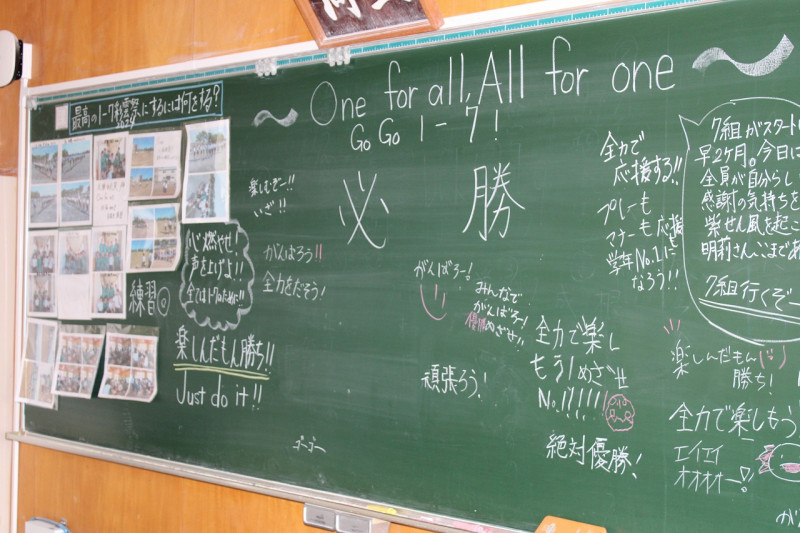 最高の1-7彩雲祭にするには何をする?
One for all, All for one
Go Go 1-7!
必勝
楽しむぞー!!
いぇい!!
がんばろう!!
全力をだそう!
心燃やせ!
声を上げよ!!
練習
楽しんだもん勝ち!!
Just do it!!
ゴーゴー
がんばろー!
みんなで
がんばろー!
優勝めざせ!!
頑張ろう!
全力で楽し
もう!めざせ
No.1!!!!!
絶対優勝!
全力で
応援する!!
プレーも
マナーも応援も
学年No.1に
なろう!!
7組がスタート
早2ヶ月。今日は
全員が自分らし
感謝の気持ちを
紫せん風を起こ
明莉さん、ここまであ
7組行くぞー
楽しんだもん
勝ち!
全力で楽しもう
エイエイ
オオオオー!